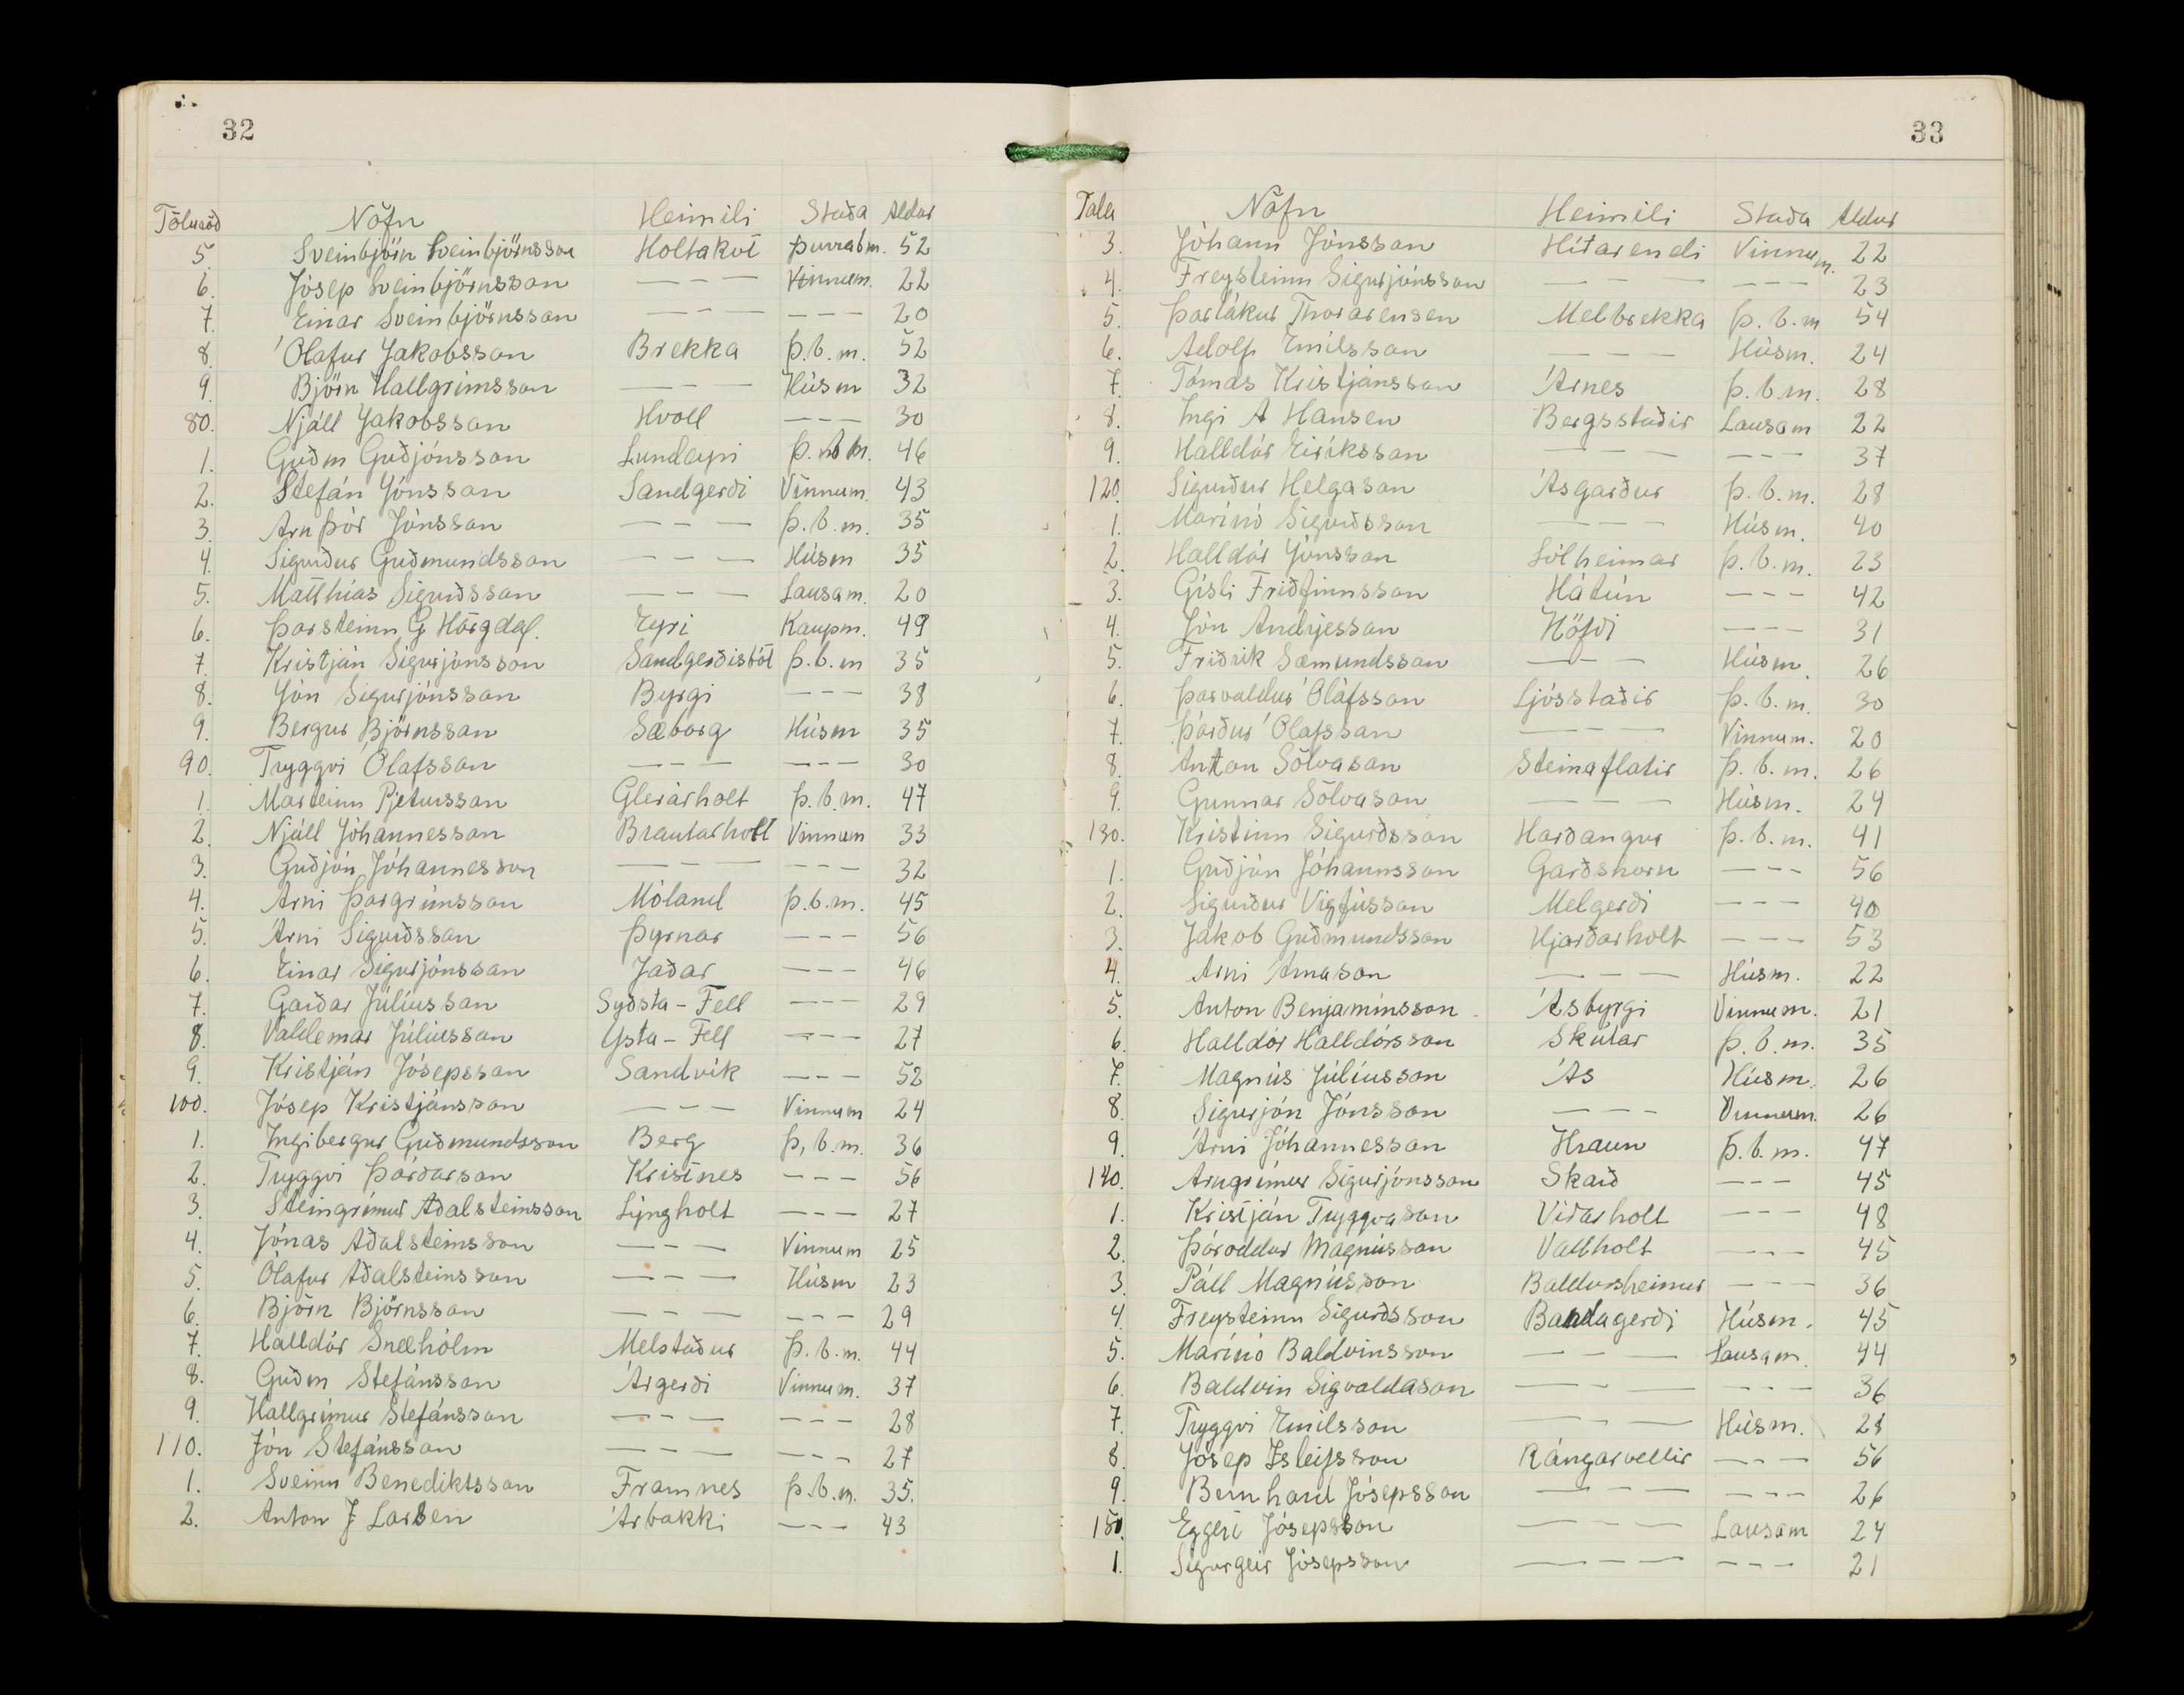 32
Töluröð Nöfn Heimili Staða Aldur
5. Sveinbjörn Sveinbjörnsson Holtakot Þurrabm. 52
6. Jósep Sveinbjörnsson — — — Vinnum. 22
7. Einar Sveinbjörnsson — — — — — — 20
8. Ólafur Jakobsson Brekka Þ.b.m. 52
9. Björn Hallgrímsson — — — Húsm 32
80. Njáll Jakobsson Hvoll — — — 30
1. Guðm Guðjónsson Lundeyri Þ.b.m. 46
2. Stefán Jónsson Sandgerði Vinnum. 43
3. Arnþór Jónsson — — — Þ.b.m. 35
4. Sigurður Guðmundsson — — — Húsm 35
5. Matthías Sigurðsson — — — Lausam. 20
6. Þorsteinn G Hörgdal. Eyri Kaupm. 49
7. Kristján Sigurjónsson Sandgerðisbót Þ.b.m 35
8. Jón Sigurjónsson Byrgi — — — 38
9. Bergur Björnsson Sæborg Húsm 35
90. Tryggvi Ólafsson — — — — — — 30
1. Marteinn Pjetursson Glerárholt Þ.b.m. 47
2. Njáll Jóhannesson Brautarholt Vinnum 33
3. Guðjón Jóhannesson — — — — — — 32
4. Árni Þorgrímsson Móland Þ.b.m. 45
5. Árni Sigurðsson Þyrnar — — — 56
6. Einar Sigurjónsson Jaðar — — — 46
7. Garðar Júlíusson Syðsta-Fell — — — 29
8. Valdemar Júlíusson Ysta-Fell — — — 27
9. Kristján Jósepsson Sandvík — — — 52
100. Jósep Kristjánsson — — — Vinnum 24
1. Ingibergur Guðmundsson Berg Þ.b.m. 36
2. Tryggvi Þórðarson Kristnes — — — 56
3. Steingrímur Aðalsteinsson Lyngholt — — — 27
4. Jónas Aðalsteinsson — — — Vinnum 25
5. Ólafur Aðalsteinsson — — — Húsm 23
6. Björn Björnsson — — — — — — 29
7. Halldór Snæhólm Melstaður Þ.b.m. 44
8. Guðm Stefánsson Árgerði Vinnum. 37
9. Hallgrímur Stefánsson — — — — — — 28
110. Jón Stefánsson — — — — — — 27
1. Sveinn Benediktsson Framnes Þ.b.m. 35.
2. Anton J Larsen Árbakki — — — 43
33
Tala Nöfn Heimili Staða Aldur
3. Jóhann Jónsson Hítarendi Vinnum. 22
4. Freysteinn Sigurjónsson — — — — — — 23
5. Þorlákur Thorarensen Melbrekka Þ.b.m 54
6. Adolf Emilsson — — — Húsm. 24
7. Tómas Kristjánsson Árnes Þ.b.m. 28
8. Ingi A Hansen Bergsstaðir Lausam 22
9. Halldór Eiríksson — — — — — — 37
120. Sigurður Helgason Ásgarður Þ.b.m. 28
1. Marínó Sigurðsson — — — Húsm. 40
2. Halldór Jónsson Sólheimar Þ.b.m. 23
3. Gísli Friðfinnsson Hátún — — — 42
4. Jón Andrjesson Höfði — — — 31
5. Friðrik Sæmundsson — — — Húsm. 26
6. Þorvaldur Ólafsson Ljósstaðir Þ.b.m. 30
7. Þórður Ólafsson — — — Vinnum. 20
8. Anton Sölvason Steinaflatir Þ.b.m. 26
9. Gunnar Sölvason — — — Húsm. 24
130. Kristinn Sigurðsson Harðangur Þ.b.m. 41
1. Guðjón Jóhannsson Garðshorn — — — 56
2. Sigurður Vigfússon Melgerði — — — 40
3. Jakob Guðmundsson Hjarðarholt — — — 53
4. Árni Árnason — — — Húsm. 22
5. Anton Benjamínsson Ásbyrgi Vinnum. 21
6. Halldór Halldórsson Skútar Þ.b.m. 35
7. Magnús Júlíusson Ás Húsm. 26
8. Sigurjón Jónsson — — — Vinnum. 26
9. Árni Jóhannesson Hraun Þ.b.m. 47
140. Arngrímur Sigurjónsson Skarð — — — 45
1. Kristján Tryggvason Viðarholt — — — 48
2. Þóroddur Magnússon Vallholt — — — 45
3. Páll Magnússon Baldursheimur — — — 36
4. Freysteinn Sigurðsson Bandagerði Húsm. 45
5. Marínó Baldvinsson — — — Lausam. 44
6. Baldvin Sigvaldason — — — — — — 36
7. Tryggvi Emilsson — — — Húsm. 28
8. Jósep Ísleifsson Rángárvellir — — — 56
9. Bernhard Jósepsson — — — — — — 26
150. Eggert Jósepsson — — — Lausam 24
1. Sigurgeir Jósepsson — — — — — — 21